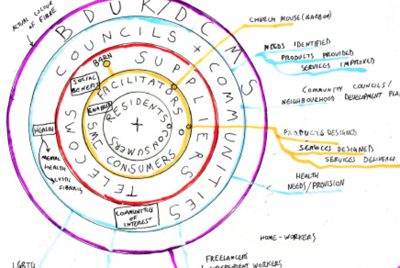 ACTUAL COLOUR
OF FIBRE
BDUK/DCMS
COUNCILS + COMMUNITIES
TELECOMS SUPPLIERS
FACILITATORS
SMES CONSUMERS
RESIDENTS
CONSUMERS
BARN
SOCIAL
BENEFIT
HEALTH
MENTAL
HEALTH
CYSTIC
FIBROSIS
COMMUNITIES OF
INTEREST
CHURCH MOUSE (
NEEDS IDENTIFIED
PRODUCTS PROVIDED
SERVICES IMPROVED
COMMUNITY COUNCILS/
NEIGHBOURHOOD DEVELOPMENT PLA
PRODUCTS DESIGNED
SERVICES DESIGNED
SERVICES DELIVERE
HEALTH
NEEDS/PROVISION
HOME-WORKERS
FREELANCERS
INDEPENDENT WORKERS
LGBTQ